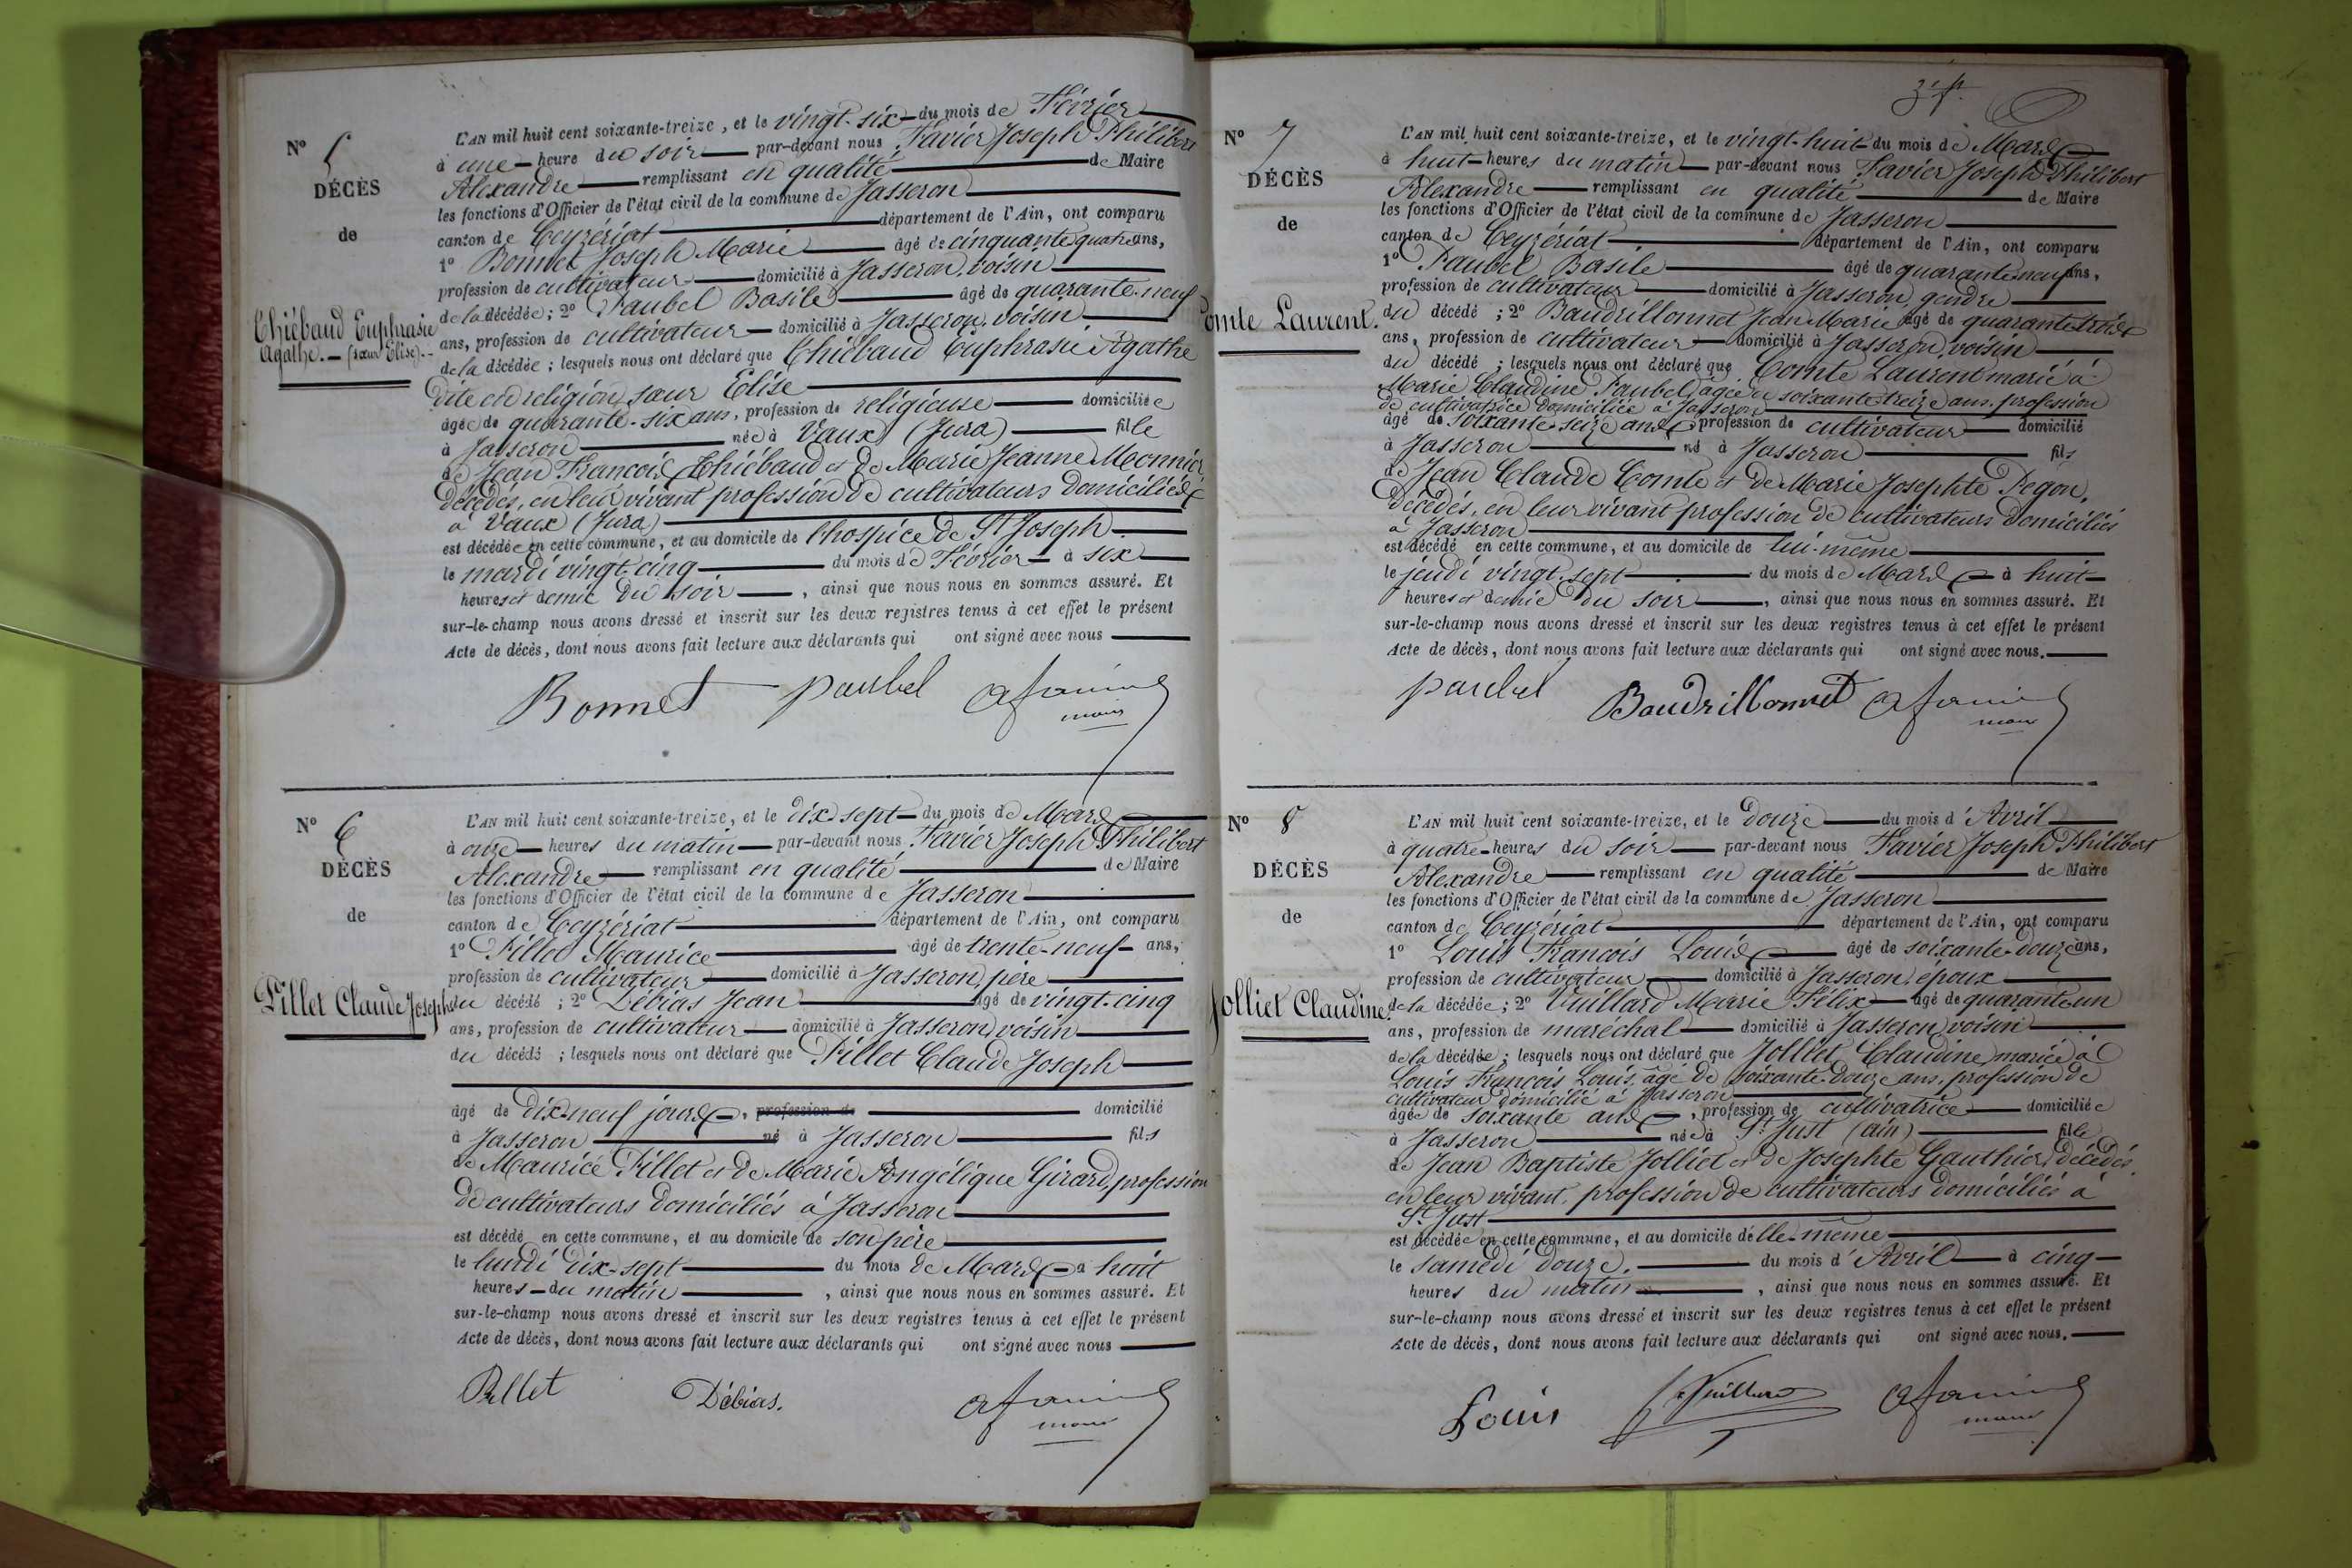 N° 5
DÉCÈS
de
Thiébaud Euphrasie
Agathe. — (sœur Elise). —
L'AN mil huit cent soixante-treize, et le vingt-six du mois de Février
à une heure du soir par-devant nous Favier Joseph Philibert
Alexandre remplissant en qualité de Maire
les fonctions d'Officier de l'état civil de la commune de Jasseron
canton de Ceyzériat département de l'Ain, ont comparu
1° Bonnet Joseph Marie âgé de cinquante quatre ans,
profession de cultivateur domicilié à Jasseron, voisin
de la décédée ; 2° Paubel Basile âgé de quarante-neuf
ans, profession de cultivateur domicilié à Jasseron, voisin
de la décédée ; lesquels nous ont déclaré que Thiébaud Euphrasie Agathe
dite en religion sœur Elise
âgée de quarante-six ans, profession de religieuse domiciliée
à Jasseron née à Vaux (Jura) fille
de Jean François Thiébaud et de Marie Jeanne Monnier
décédés, en leur vivant profession de cultivateurs domiciliés
à Vaux (Jura)
est décédée en cette commune, et au domicile de l'hospice de St Joseph
le mardi vingt-cinq du mois de Février à six
heures et demie du soir , ainsi que nous nous en sommes assuré. Et
sur-le-champ nous avons dressé et inscrit sur les deux registres tenus à cet effet le présent
Acte de décès, dont nous avons fait lecture aux déclarants qui ont signé avec nous
Bonnet paubel afavier
maire
N° 6
DÉCÈS
de
Pillet Claude Joseph
L'AN mil huit cent soixante-treize, et le dix sept du mois de Mars
à onze heures du matin par-devant nous Favier Joseph Philibert
Alexandre remplissant en qualité de Maire
les fonctions d'Officier de l'état civil de la commune de Jasseron
canton de Ceyzériat département de l'Ain, ont comparu
1° Pillet Maurice âgé de trente-neuf ans,
profession de cultivateur domicilié à Jasseron, père
du décédé ; 2° Débias Jean âgé de vingt-cinq
ans, profession de cultivateur domicilié à Jasseron, voisin
du décédé ; lesquels nous ont déclaré que Pillet Claude Joseph
âgé de dix-neuf jours, profession de domicilié
à Jasseron né à Jasseron fils
de Maurice Pillet et de Marie Angélique Girard, profession
de cultivateurs domiciliés à Jasseron
est décédé en cette commune, et au domicile de son père
le lundi dix-sept du mois de Mars à huit
heures du matin , ainsi que nous nous en sommes assuré. Et
sur-le-champ nous avons dressé et inscrit sur les deux registres tenus à cet effet le présent
Acte de décès, dont nous avons fait lecture aux déclarants qui ont signé avec nous
Pillet Débias. afavier
maire
N° 7
DÉCÈS
de
omte Laurent.
L'AN mil huit cent soixante-treize, et le vingt-huit du mois de Mars
à huit heures du matin par-devant nous Favier Joseph Philibert
Alexandre remplissant en qualité de Maire
les fonctions d'Officier de l'état civil de la commune de Jasseron
canton de Ceyzériat département de l'Ain, ont comparu
1° Paubel Basile âgé de quarante-neuf ans,
profession de cultivateur domicilié à Jasseron, gendre
du décédé ; 2° Baudrillonnet Jean Marie âgé de quarante-treize
ans, profession de cultivateur domicilié à Jasseron, voisin
du décédé ; lesquels nous ont déclaré que Comte Laurent marié à
Marie Claudine Paubel, âgée de soixante-treize ans, profession
de cultivatrice domiciliée à Jasseron
âgé de soixante-seize ans, profession de cultivateur domicilié
à Jasseron né à Jasseron fils
de Jean Claude Comte et de Marie Josephte Pegon,
décédés, en leur vivant profession de cultivateurs domiciliés
à Jasseron
est décédé en cette commune, et au domicile de lui-même
le jeudi vingt-sept du mois de Mars à huit
heures et demie du soir , ainsi que nous nous en sommes assuré. Et
sur-le-champ nous avons dressé et inscrit sur les deux registres tenus à cet effet le présent
Acte de décès, dont nous avons fait lecture aux déclarants qui ont signé avec nous.
paubel Baudrillonnet afavier
maire
N° 8
DÉCÈS
de
Jolliet Claudine.
L'AN mil huit cent soixante-treize, et le douze du mois d'Avril
à quatre heures du soir par-devant nous Favier Joseph Philibert
Alexandre remplissant en qualité de Maire
les fonctions d'Officier de l'état civil de la commune de Jasseron
canton de Ceyzériat département de l'Ain, ont comparu
1° Louis François Louis âgé de soixante-douze ans,
profession de cultivateur domicilié à Jasseron, époux
de la décédée ; 2° Vuillard Marie Félix âgé de quarante-un
ans, profession de maréchal domicilié à Jasseron, voisin
de la décédée ; lesquels nous ont déclaré que Jolliet Claudine mariée à
Louis François Louis, âgé de soixante-douze ans, profession de
cultivateur domicilié à Jasseron
âgée de soixante ans, profession de cultivatrice domiciliée
à Jasseron née à St Just (ain) fille
de Jean Baptiste Jolliet et de Josephte Gauthier, décédés,
en leur vivant, profession de cultivateurs domiciliés à
St Just
est décédée en cette commune, et au domicile d'elle-même
le samedi douze. du mois d'Avril à cinq
heures du matin , ainsi que nous nous en sommes assuré. Et
sur-le-champ nous avons dressé et inscrit sur les deux registres tenus à cet effet le présent
Acte de décès, dont nous avons fait lecture aux déclarants qui ont signé avec nous.
Louis Vuillard afavier
maire